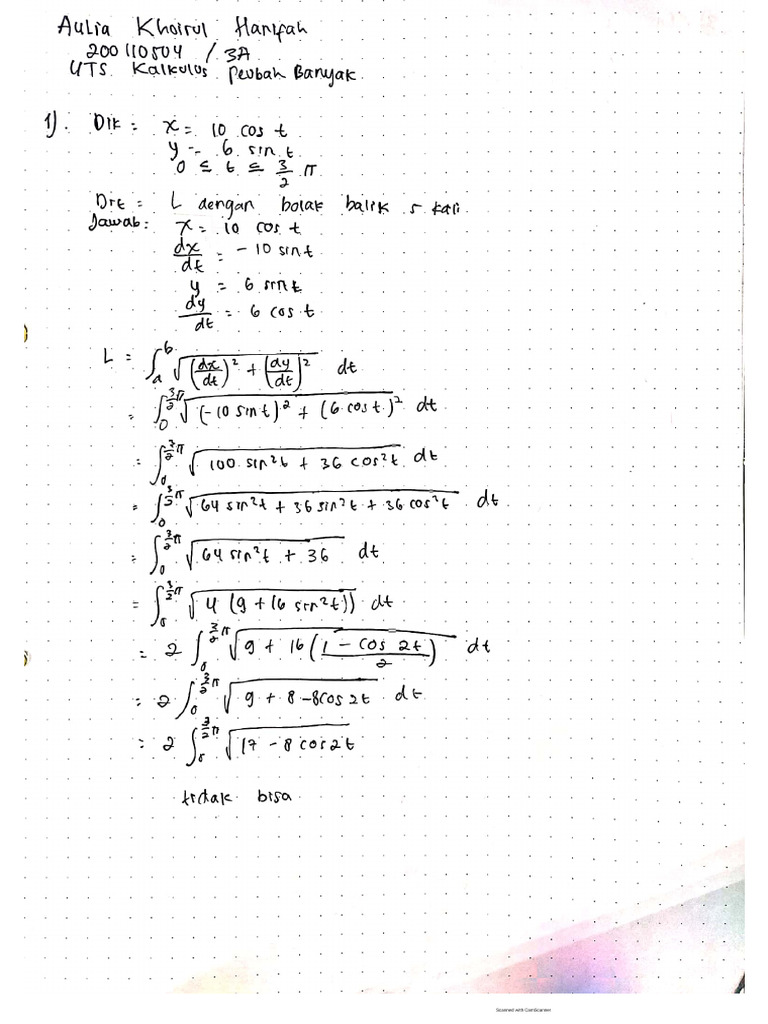 Aulia Khoirul Hanifah
200110504 / 3A
UTS Kalkulus Peubah Banyak
1). Dik = x = 10 cos t
y = 6 sin t
0 ≤ t ≤ 3/2 π
Dit = L dengan bolak balik 5 kali
Jawab: x = 10 cos t
dx/dt = -10 sin t
y = 6 sin t
dy/dt = 6 cos t
L = ∫_a^b √((dx/dt)² + (dy/dt)²) dt
= ∫_0^{3/2 π} √((-10 sin t)² + (6 cos t)²) dt
= ∫_0^{3/2 π} √(100 sin² t + 36 cos² t) dt
= ∫_0^{3/2 π} √(64 sin² t + 36 sin² t + 36 cos² t) dt
= ∫_0^{3/2 π} √(64 sin² t + 36) dt
= ∫_0^{3/2 π} √(4 (9 + 16 sin² t)) dt
= 2 ∫_0^{3/2 π} √(9 + 16 ((1 - cos 2t)/2)) dt
= 2 ∫_0^{3/2 π} √(9 + 8 - 8 cos 2t) dt
= 2 ∫_0^{3/2 π} √(17 - 8 cos 2t)
tidak bisa
Scanned with CamScanner